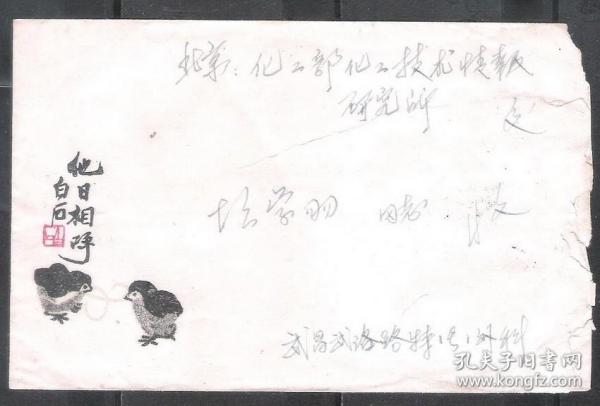 北京：化工部化工技术情报
研究所
学羽 同志 收
他日相呼
白石
武昌武珞路特1号
孔夫子旧书网
www.kongfz.com